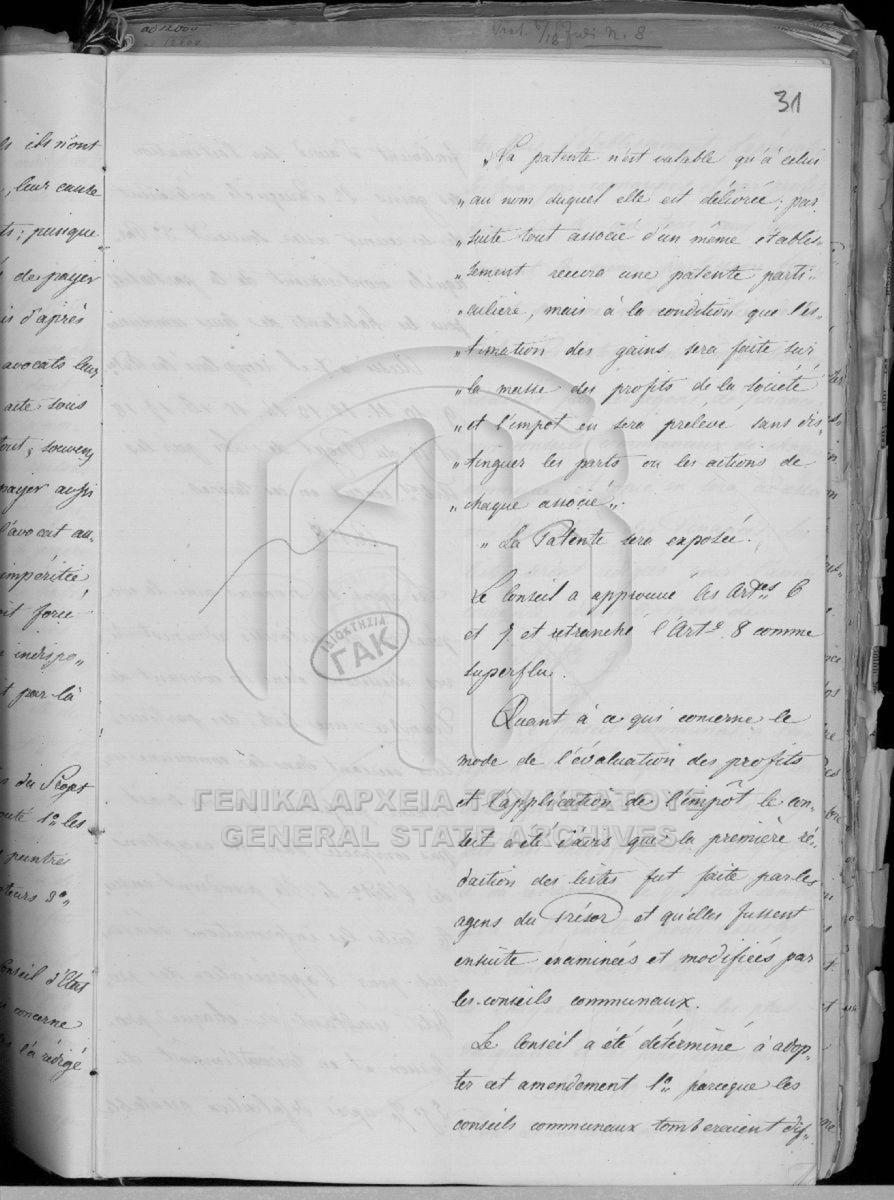 ad 12000
Prot. 6/18 Juli N. 8
31
ls ils n'ont
, leur cause
ts; puisque
de payer
is d'après
avocats leur
aite sous
tout; souvent
payer aussi
l'avocat au„
impéritie
oit forcé
indispo„
t par là
s du Projet
outé 1º les
peintre
ateurs 3º„
Conseil d'Etat
concerne
l'a rédigé
„La patente n'est valable qu'à celui
„au nom duquel elle est délivrée; par
„suite tout associé d'un même établis„
„sement recevra une patente parti„
„culière, mais à la condition que l'es„
„timation des gains sera faite sur
„la masse des profits de la société
„et l'impot en sera prélevé sans dis„
„tinguer les parts ou les actions de
„chaque associé„.
„La Patente sera exposée.
Le Conseil a approuvé les Art.es 6
et 7. et retranché l'Art.e 8 comme
superflu.
Quant à ce qui concerne le
mode de l'évaluation des profits
et l'application de l'impôt le con„
seil a été d'avis que la première ré„
daction des listes fut faite par les
agens du Trésor et qu'elles fussent
ensuite examinées et modifiées par
les conseils communaux.
Le Conseil a été déterminé à adop„
ter cet amendement 1º„ parceque les
conseils communaux tomberaient dif„
ΙΔΙΟΚΤΗΣΙΑ
ΓΑΚ
ΓΕΝΙΚΑ ΑΡΧΕΙΑ ΤΟΥ ΚΡΑΤΟΥΣ
GENERAL STATE ARCHIVES